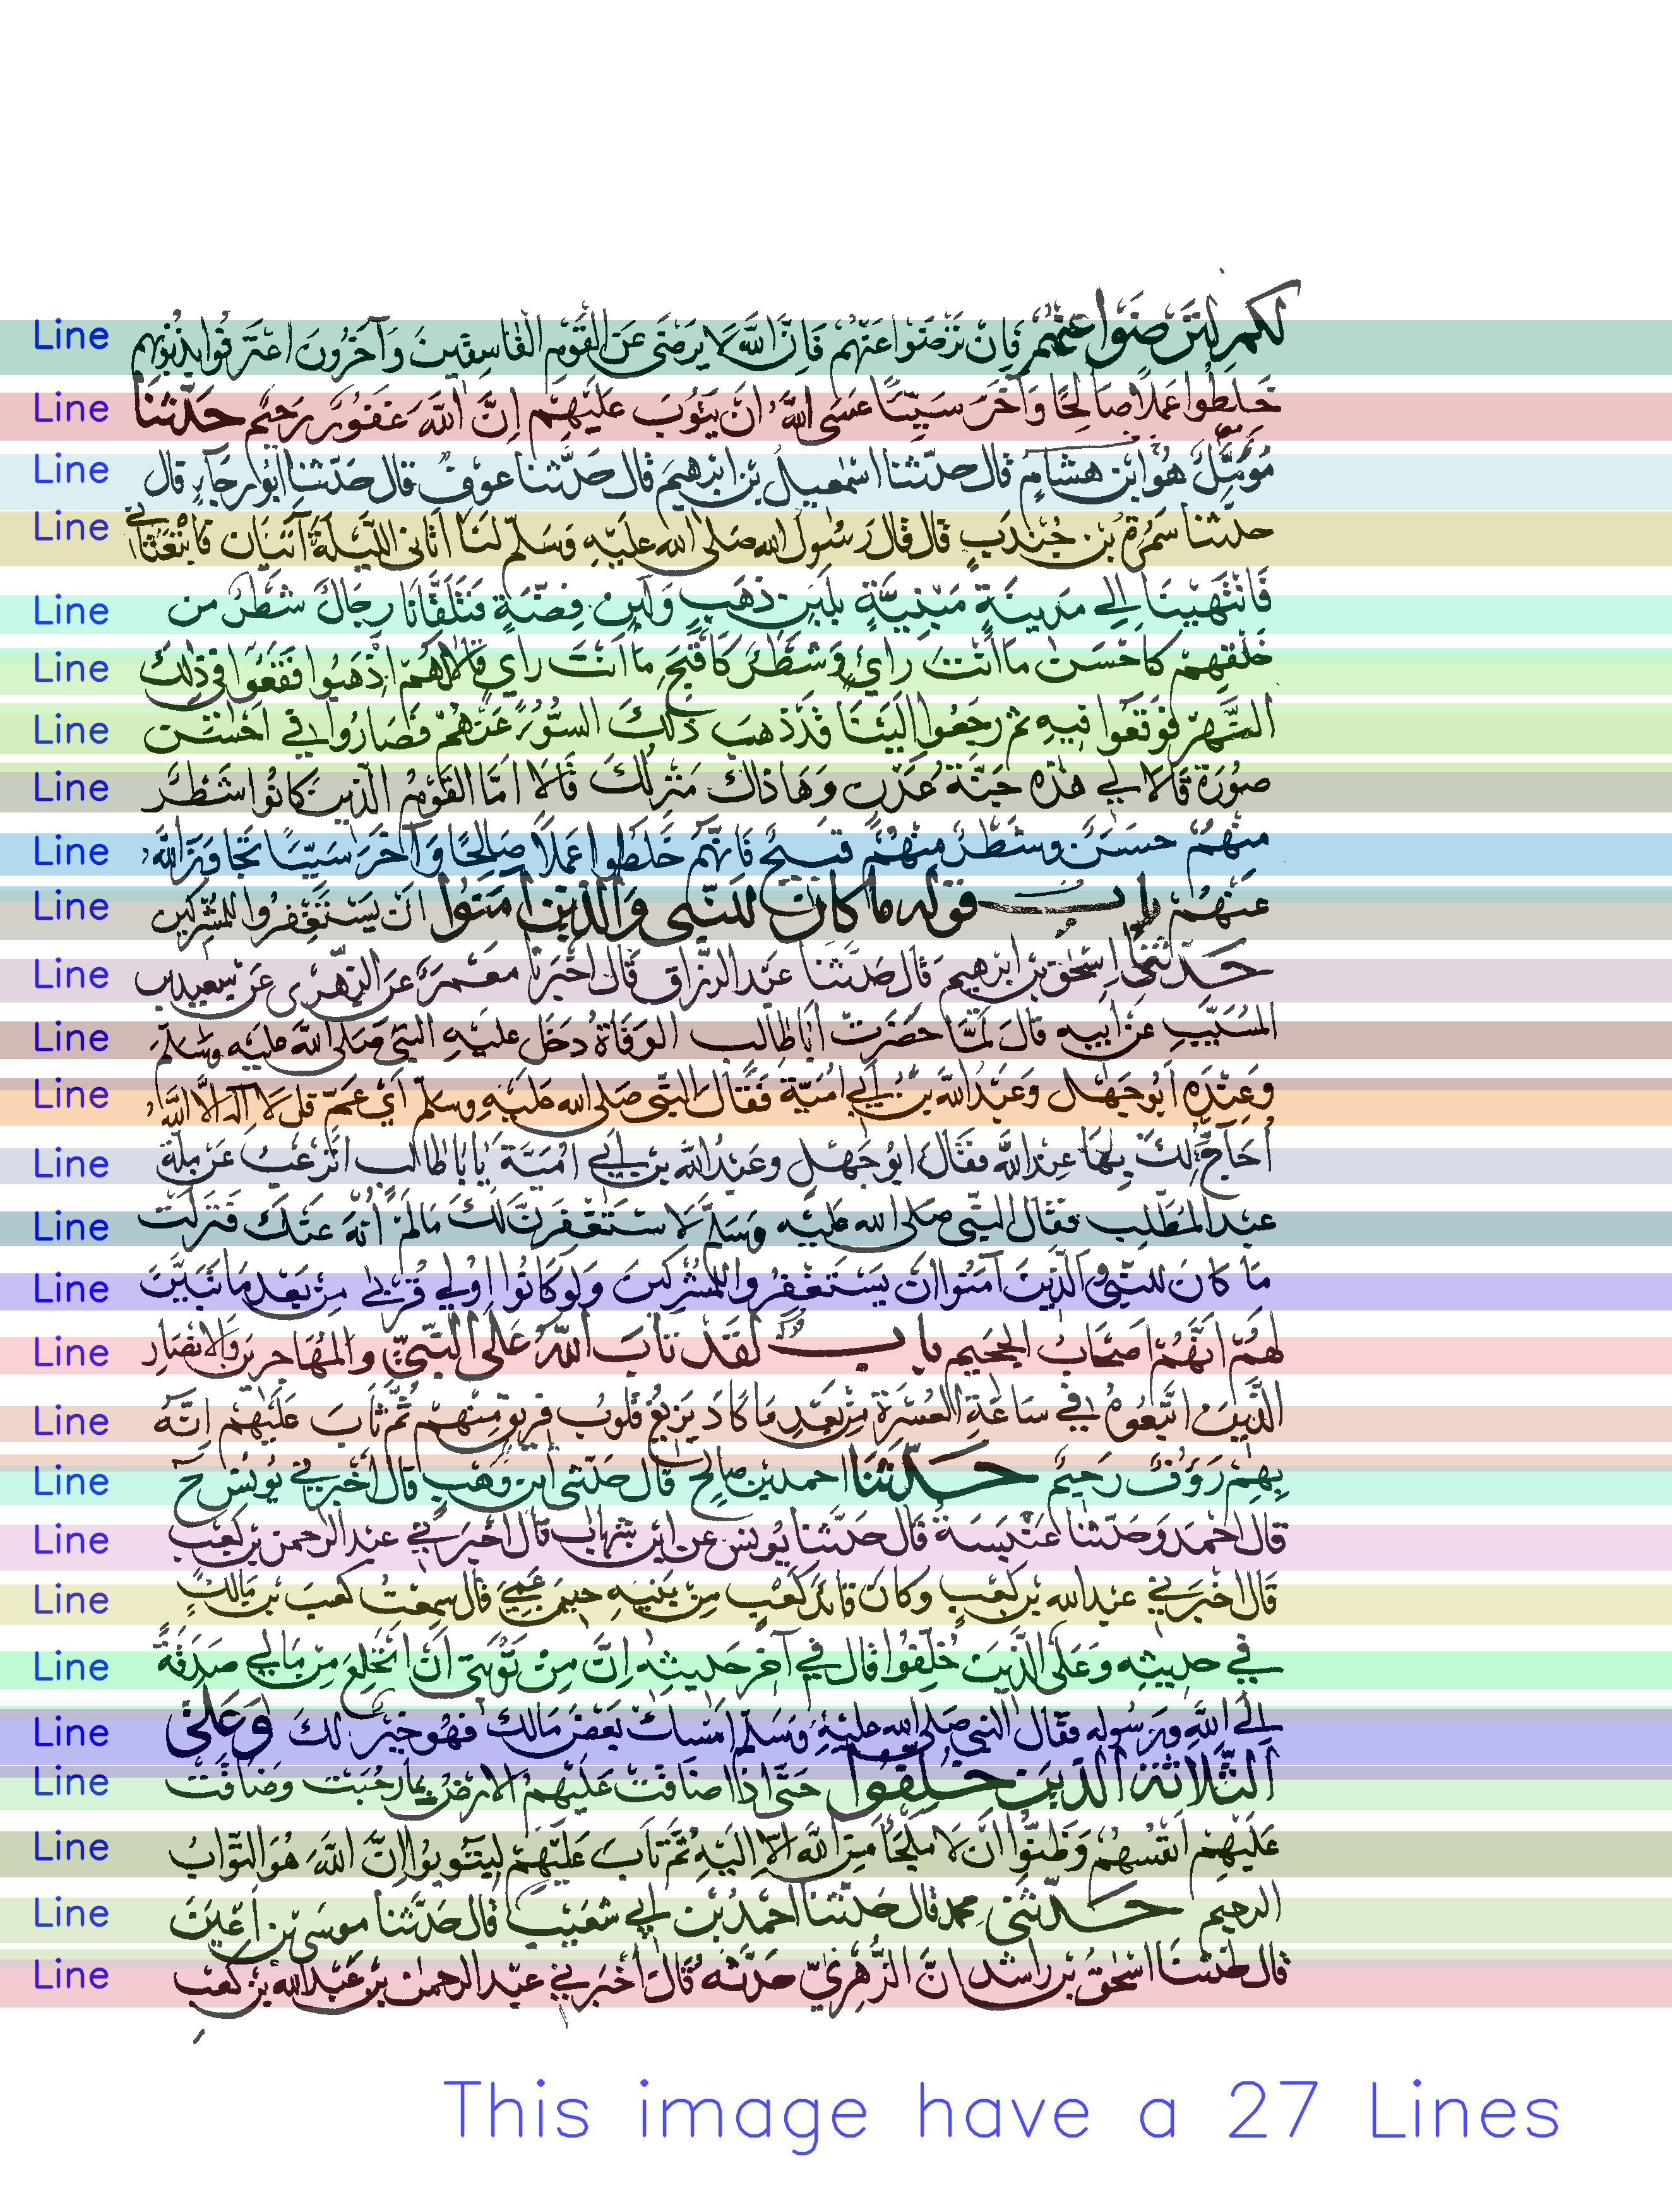 Line لكم لترضوا عنهم فإن ترضوا عنهم فإن الله لا يرضى عن القوم الفاسقين وآخرون اعترفوا بذنوبهم
Line خلطوا عملا صالحا وآخر سيئا عسى الله ان يتوب عليهم إن الله غفور رحيم حدثنا
Line مؤمل هو ابن هشام قال حدثنا اسمعيل بن ابرهيم قال حدثنا عوف قال حدثنا ابو رجاء قال
Line حدثنا سمرة بن جندب قال قال رسول الله صلى الله عليه وسلم لنا أتاني الليلة آتيان فابتعثاني
Line فانتهينا إلى مدينة مبنية بلبن ذهب ولبن فضة فتلقانا رجال شطر من
Line خلقهم كاحسن ما أنت رأي وشطر كاقبح ما أنت رأي قالا لهم اذهبوا فقعوا في ذلك
Line النهر فوقعوا فيه ثم رجعوا إلينا قد ذهب ذلك السوء عنهم فصاروا في احسن
Line صورة قالا لي هذه جنة عدن وهذاك منزلك قالا اما القوم الذين كانوا شطر
Line منهم حسن وشطر منهم قبيح فانهم خلطوا عملا صالحا وآخر سيئا تجاوز الله
Line عنهم باب قوله ما كان للنبي والذين آمنوا ان يستغفروا للمشركين
Line حدثني إسحق بن ابرهيم قال حدثنا عبد الرزاق قال اخبرنا معمر عن الزهري عن سعيد بن
Line المسيب عن ابيه قال لما حضرت أبا طالب الوفاة دخل عليه النبي صلى الله عليه وسلم
Line وعنده أبو جهل وعبد الله بن أبي امية فقال النبي صلى الله عليه وسلم أي عم قل لا إله إلا الله
Line أحاج لك بها عند الله فقال ابو جهل وعبد الله بن أبي امية يا با طالب اترغب عن ملة
Line عبد المطلب فقال النبي صلى الله عليه وسلم لاستغفرن لك ما لم أنه عنك فنزلت
Line ما كان للنبي والذين آمنوا ان يستغفروا للمشركين ولو كانوا اولي قربى من بعد ما تبين
Line لهم انهم اصحاب الجحيم باب لقد تاب الله على النبي والمهاجرين والانصار
Line الذين اتبعوه في ساعة العسرة من بعد ما كاد يزيغ قلوب فريق منهم ثم تاب عليهم إنه
Line بهم رؤف رحيم حدثنا احمد بن صالح قال حدثني ابن وهب قال أخبرني يونس ح
Line قال احمد وحدثنا عنبسة قال حدثنا يونس عن ابن شهاب قال اخبرني عبد الرحمن بن كعب
Line قال اخبرني عبد الله بن كعب وكان قائد كعب من بنيه حين عمي قال سمعت كعب بن مالك
Line في حديثه وعلى الذين خلفوا قال في آخر حديثه إن من توبتي أن انخلع من مالي صدقة
Line إلى الله ورسوله فقال النبي صلى الله عليه وسلم امسك بعض مالك فهو خير لك وعلى
Line الثلاثة الذين خلفوا حتى اذا ضاقت عليهم الارض بما رحبت وضاقت
Line عليهم أنفسهم وظنوا أن لا ملجأ من الله الا إليه ثم تاب عليهم ليتوبوا إن الله هو التواب
Line الرحيم حدثني محمد قال حدثنا احمد بن أبي شعيب قال حدثنا موسى بن أعين
Line قال حدثنا اسحق بن راشد ان الزهري حدثه قال أخبرني عبد الرحمن بن عبد الله بن كعب
This image have a 27 Lines